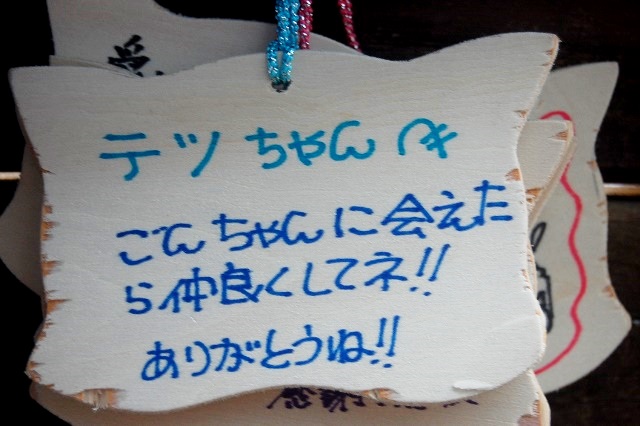 受
テツちゃんへ
ごんちゃんに会えた
ら仲良くしてネ!!
ありがとうね!!
感謝